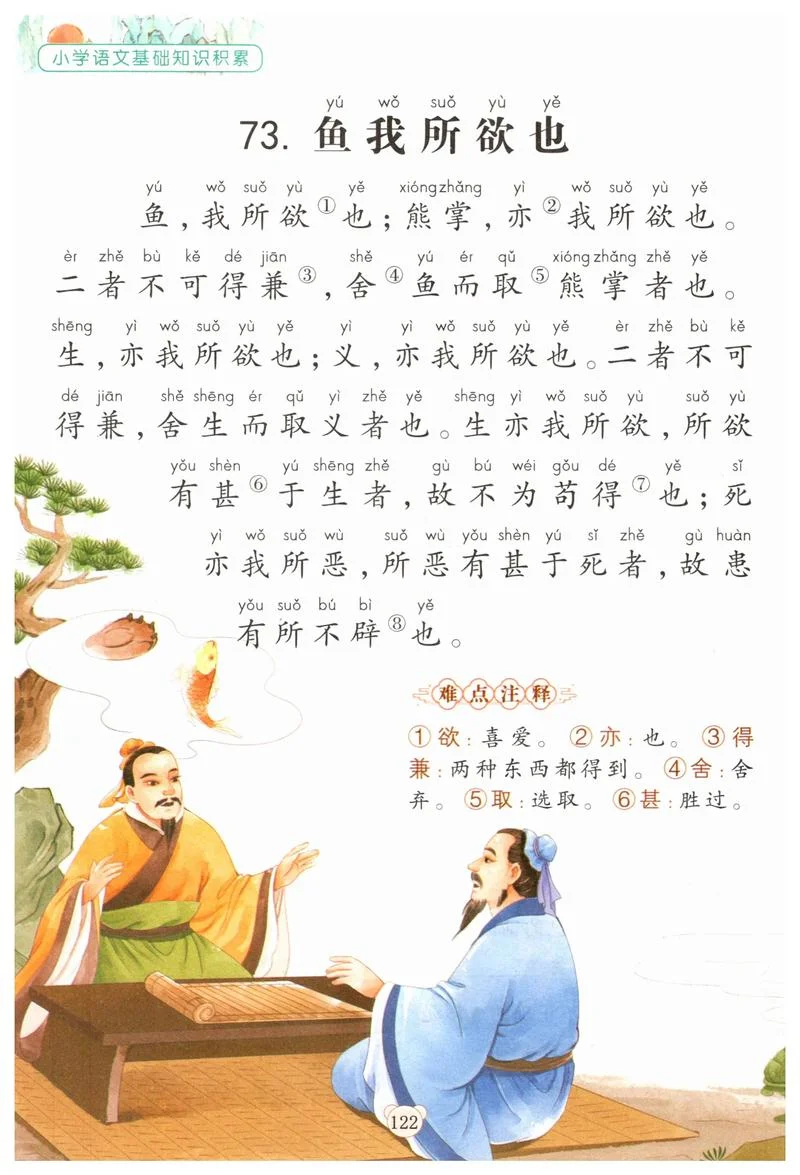 小学语文基础知识积累
yú wǒ suǒ yù yě
73. 鱼我所欲也
yú wǒ suǒ yù yě xióngzhǎng yì wǒ suǒ yù yě
鱼,我所欲①也;熊掌,亦②我所欲也。
èr zhě bù kě dé jiān shě yú ér qǔ xióngzhǎng zhě yě
二者不可得兼③,舍④鱼而取⑤熊掌者也。
shēng yì wǒ suǒ yù yě yì yì wǒ suǒ yù yě èr zhě bù kě
生,亦我所欲也;义,亦我所欲也。二者不可
dé jiān shě shēng ér qǔ yì zhě yě shēng yì wǒ suǒ yù suǒ yù
得兼,舍生而取义者也。生亦我所欲,所欲
yǒu shèn yú shēng zhě gù bú wéi gǒu dé yě sǐ
有甚⑥于生者,故不为苟得⑦也;死
yì wǒ suǒ wù suǒ wù yǒu shèn yú sǐ zhě gù huàn
亦我所恶,所恶有甚于死者,故患
yǒu suǒ bú bì yě
有所不辟⑧也。
难点注释
①欲:喜爱。 ②亦:也。 ③得
兼:两种东西都得到。 ④舍:舍
弃。 ⑤取:选取。 ⑥甚:胜过。
122